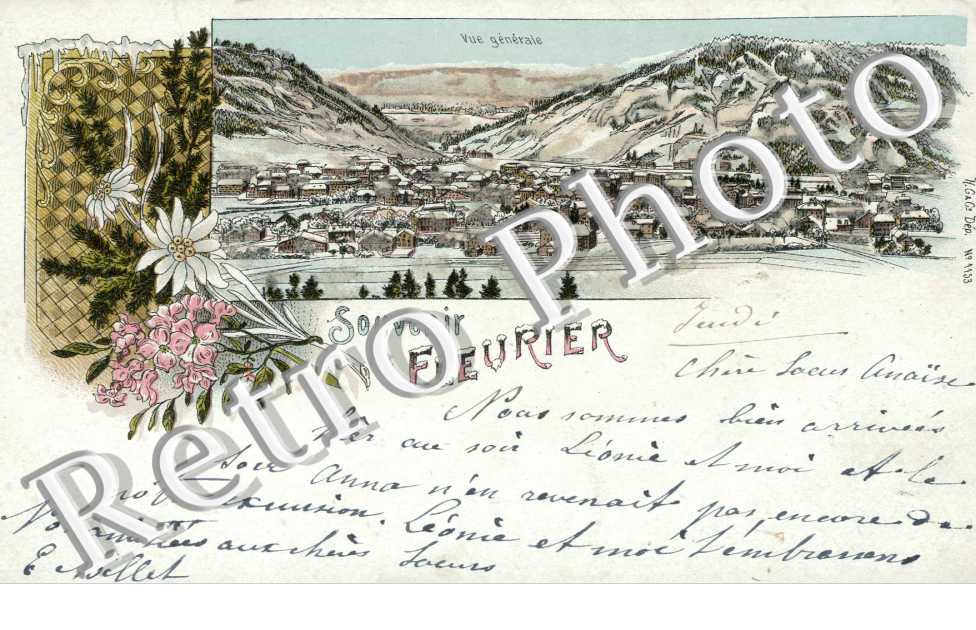 Vue générale
Souvenir
FLEURIER
Jeudi
Chère Soeur Anaïse
Nous sommes bien arrivées
hier au soir Léonie et moi et le
soir Anna n'en revenait pas encore de
excursion. Léonie et moi t'embrassons
amitiés aux chères
Soeurs
E
Retro Photo